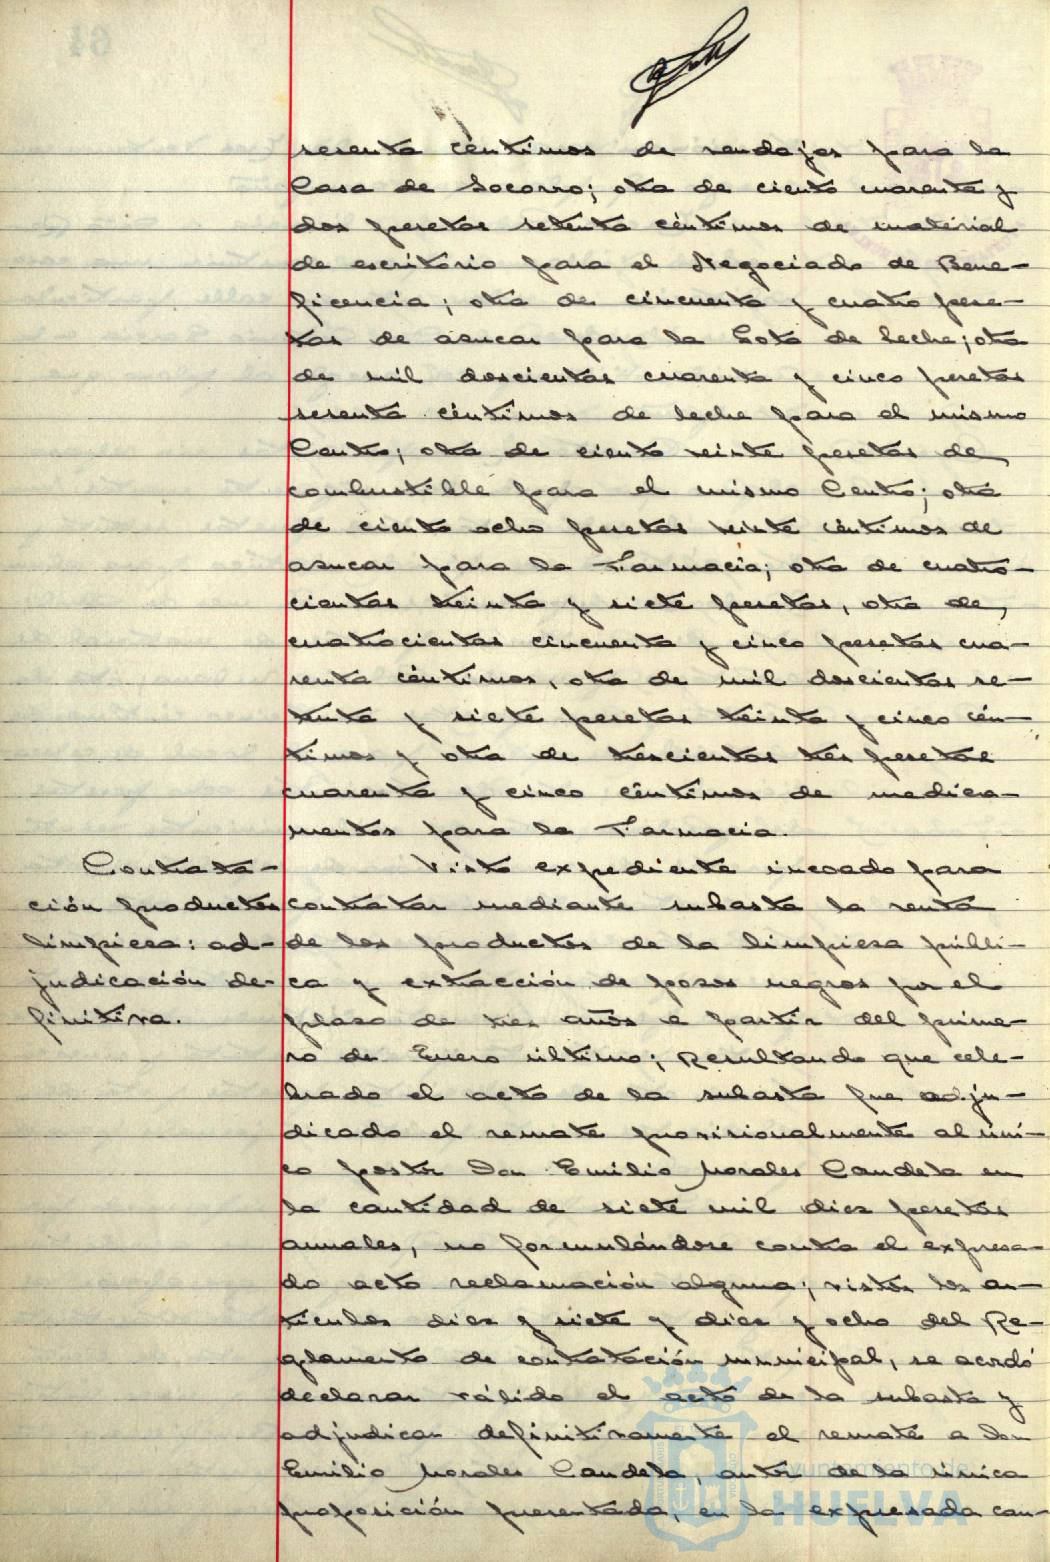 sesenta céntimos de vendajes para la
Casa de Socorro; otra de ciento cuarenta y
dos pesetas setenta céntimos de material
de escritorio para el Negociado de Bene-
ficencia; otra de cincuenta y cuatro pese-
tas de azucar para la Gota de leche; otra
de mil doscientas cuarenta y cinco pesetas
sesenta céntimos de leche para el mismo
Centro; otra de ciento veinte pesetas de
combustible para el mismo Centro; otra
de ciento ocho pesetas veinte céntimos de
azucar para la Farmacia; otra de cuatro-
cientas treinta y siete pesetas, otra de,
cuatrocientas cincuenta y cinco pesetas cua-
renta céntimos, otra de mil doscientas se-
tenta y siete pesetas treinta y cinco cén-
timos y otra de trescientas tres pesetas
cuarenta y cinco céntimos de medica-
mentos para la Farmacia.
Contrata-
ción productos
limpieza: ad-
judicación de-
finitiva.
Visto expediente incoado para
contratar mediante subasta la venta
de los productos de la limpieza públi-
ca y extracción de pozos negros por el
plazo de tres años a partir del prime-
ro de Enero último; Resultando que cele-
brado el acto de la subasta fue adju-
dicado el remate provisionalmente al úni-
co postor Don Emilio Morales Candela en
la cantidad de siete mil diez pesetas
anuales, no formulándose contra el expresa-
do acto reclamación alguna; vistos los ar-
tículos diez y siete y diez y ocho del Re-
glamento de contratación municipal, se acordó
declarar válido el acto de la subasta y
adjudicar definitivamente el remate a Don
Emilio Morales Candela, autor de la única
proposición presentada, en la expresada can-
Ayuntamiento de
HUELVA